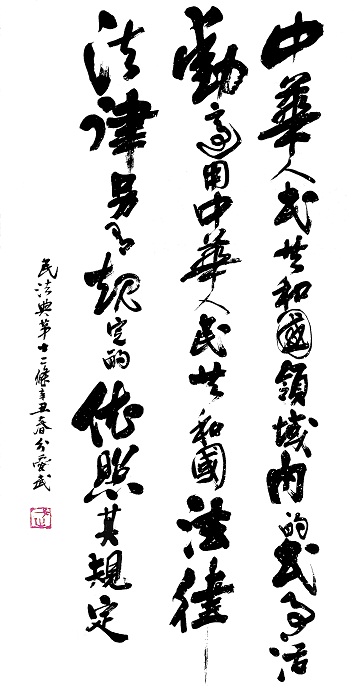 中華人民共和國領域内的民事活
動適用中華人民共和國法律
法律另有規定的依照其規定
民法典第十二條辛丑春分愛武